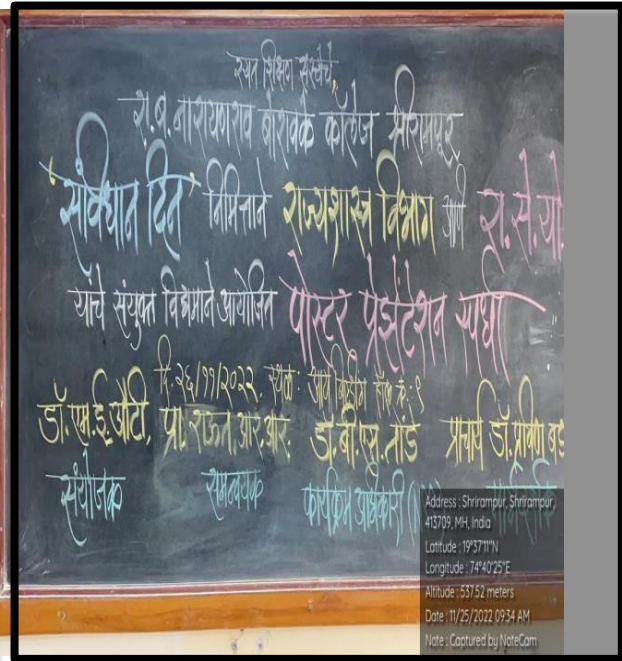 रयत शिक्षण संस्थेचे,
रा.ब.नारायणराव बोरावके कॉलेज श्रीरामपूर
'संविधान दिन' निमित्ताने राज्यशास्त्र विभाग आणि रा.से.यो.
यांचे संयुक्त विद्यमाने आयोजित पोस्टर प्रेझेंटेशन स्पर्धा
दि.२६/११/२०२२. स्थळ: आर्य बिल्डींग हॉल क्रं.:९
डॉ.एम.इ.औटी, प्रा.राऊत.आर.आर. डॉ.बी.एस.तांडे प्राचार्य डॉ.प्रविण बड
संयोजक समन्वयक कार्यक्रम अधिकारी
Address : Shrirampur, Shrirampur,
413709, MH, India
Latitude : 19°37'11"N
Longitude : 74°40'25"E
Altitude : 537.52 meters
Date : 11/25/2022 09:34 AM
Note : Captured by NoteCam